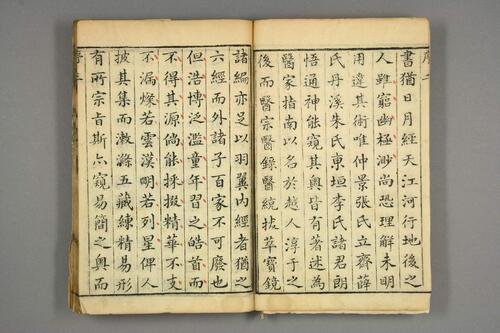 書猶日月經天江河行地後之
人雖窮幽極渺尚恐理解未明
用違其術唯仲景張氏立齋薛
氏丹溪朱氏東垣李氏諸君朗
悟通神能窺其奧皆有著述為
醫家指南以名於越人淳于之
後而醫宗醫錄醫統拔萃寶鏡
諸編亦足以羽翼內經者猶之
六經而外諸子百家不可廢也
但浩博泛濫童年習之皓首而
不得其源倘能採掇精華不支
不漏燦若雲漢明若列星俾人
披其集而漱滌五藏練精易形
有所宗旨斯亦窺易簡之奧而